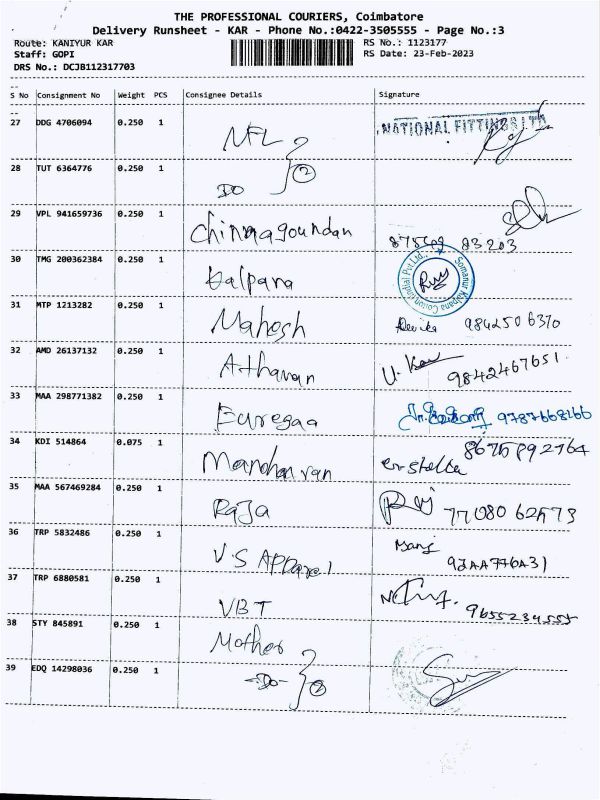 THE PROFESSIONAL COURIERS, Coimbatore
Delivery Runsheet - KAR - Phone No.:0422-3505555 - Page No.:3
Route: KANIYUR KAR RS No.: 1123177
Staff: GOPI RS Date: 23-Feb-2023
DRS No.: DCJB112317703
S No Consignment No Weight PCS Consignee Details Signature
27 DDG 4706094 0.250 1 NFL NATIONAL FITTINGS LTD
28 TUT 6364776 0.250 1 DO 2
29 VPL 941659736 0.250 1 Chinnagoundan 83203
30 TMG 200362384 0.250 1 Kalpana
31 MTP 1213282 0.250 1 Mahesh 9842506370
32 AMD 26137132 0.250 1 Athavan 9842467651
33 MAA 298771382 0.250 1 Euregaa
34 KDI 514864 0.075 1 Manoharan
35 MAA 567469284 0.250 1 Raja
36 TRP 5832486 0.250 1 V.S Apparel
37 TRP 6880581 0.250 1 VBT 9655234555
38 STY 845891 0.250 1 Mother
39 EDQ 14298036 0.250 1 -Do- 2